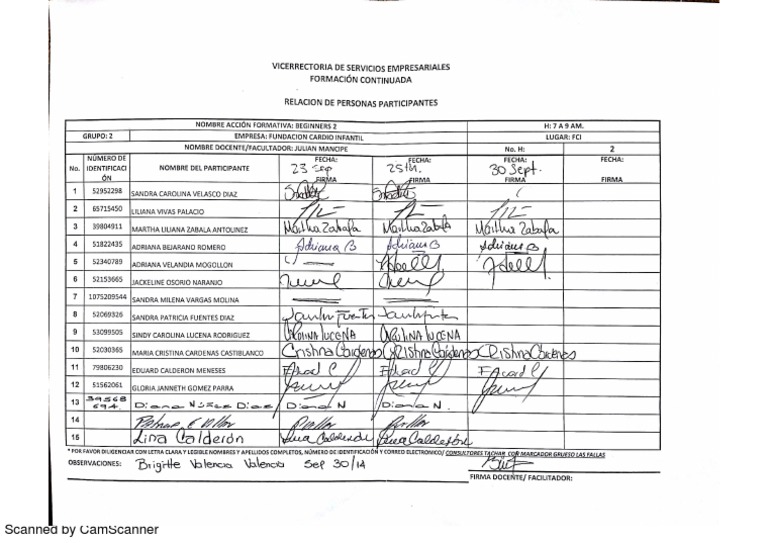 VICERRECTORIA DE SERVICIOS EMPRESARIALES
FORMACIÓN CONTINUADA
RELACION DE PERSONAS PARTICIPANTES
NOMBRE ACCIÓN FORMATIVA: BEGINNERS 2 H: 7 A 9 AM.
GRUPO: 2 EMPRESA: FUNDACION CARDIO INFANTIL LUGAR: FCI
NOMBRE DOCENTE/FACULTADOR: JULIAN MANCIPE No. H: 2
No. NÚMERO DE IDENTIFICACI ÓN NOMBRE DEL PARTICIPANTE FECHA: 23 Sep FIRMA FECHA: 25th. FIRMA FECHA: 30 Sept. FIRMA FECHA: FIRMA
1 52952298 SANDRA CAROLINA VELASCO DIAZ
2 65715450 LILIANA VIVAS PALACIO
3 39804911 MARTHA LILIANA ZABALA ANTOLINEZ Martha Zabala Martha Zabala Martha Zabala
4 51822435 ADRIANA BEJARANO ROMERO Adriana B Adriana B Adriana B
5 52340789 ADRIANA VELANDIA MOGOLLON
6 52153665 JACKELINE OSORIO NARANJO
7 1075209544 SANDRA MILENA VARGAS MOLINA
8 52069326 SANDRA PATRICIA FUENTES DIAZ
9 53099505 SINDY CAROLINA LUCENA RODRIGUEZ CAROLINA LUCENA CAROLINA LUCENA
10 52030365 MARIA CRISTINA CARDENAS CASTIBLANCO Cristina Cárdenas CRistina Cárdenas CRistina Cárdenas
11 79806230 EDUARD CALDERON MENESES
12 51562061 GLORIA JANNETH GOMEZ PARRA
13 39568 694. Diana Núñez Diaz Diana N Diana N.
14
15 Lina Calderón Lina Calderón Lina Calderón
* POR FAVOR DILIGENCIAR CON LETRA CLARA Y LEGIBLE NOMBRES Y APELLIDOS COMPLETOS, NÚMERO DE IDENTIFICACIÓN Y CORREO ELECTRONICO/ CONSULTORES TACHAR CON MARCADOR GRUESO LAS FALLAS
OBSERVACIONES: Brigitte Valencia Valencia Sep 30/14
FIRMA DOCENTE/ FACILITADOR:
Scanned by CamScanner